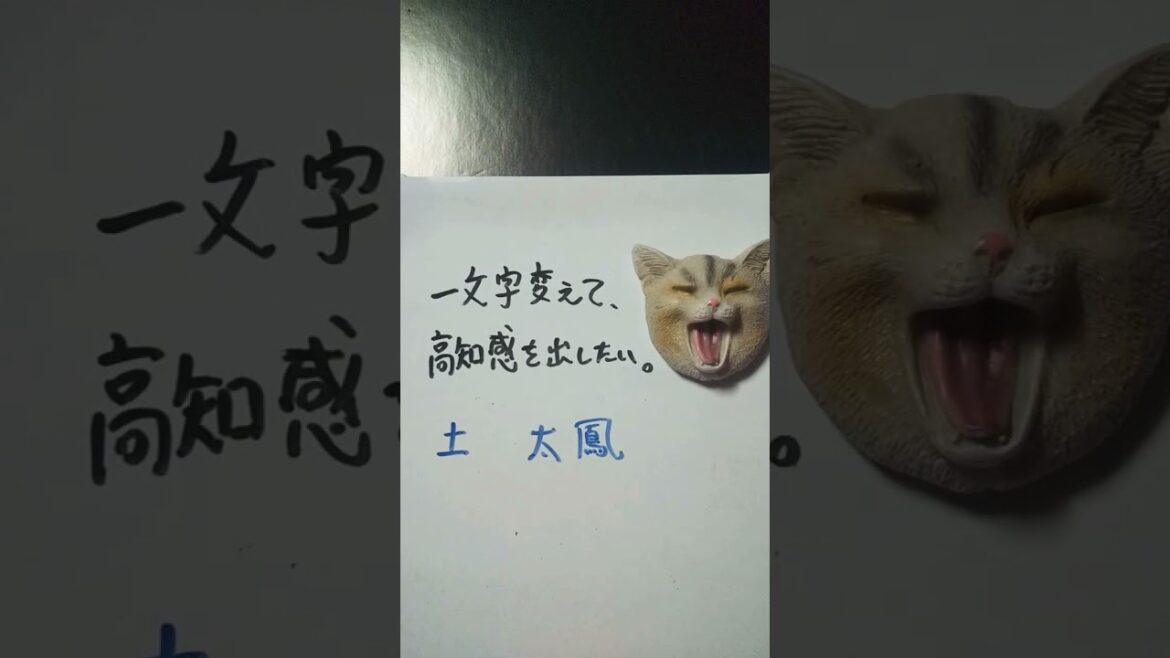 一文字変えて、
高知感を出したい。
土 太鳳